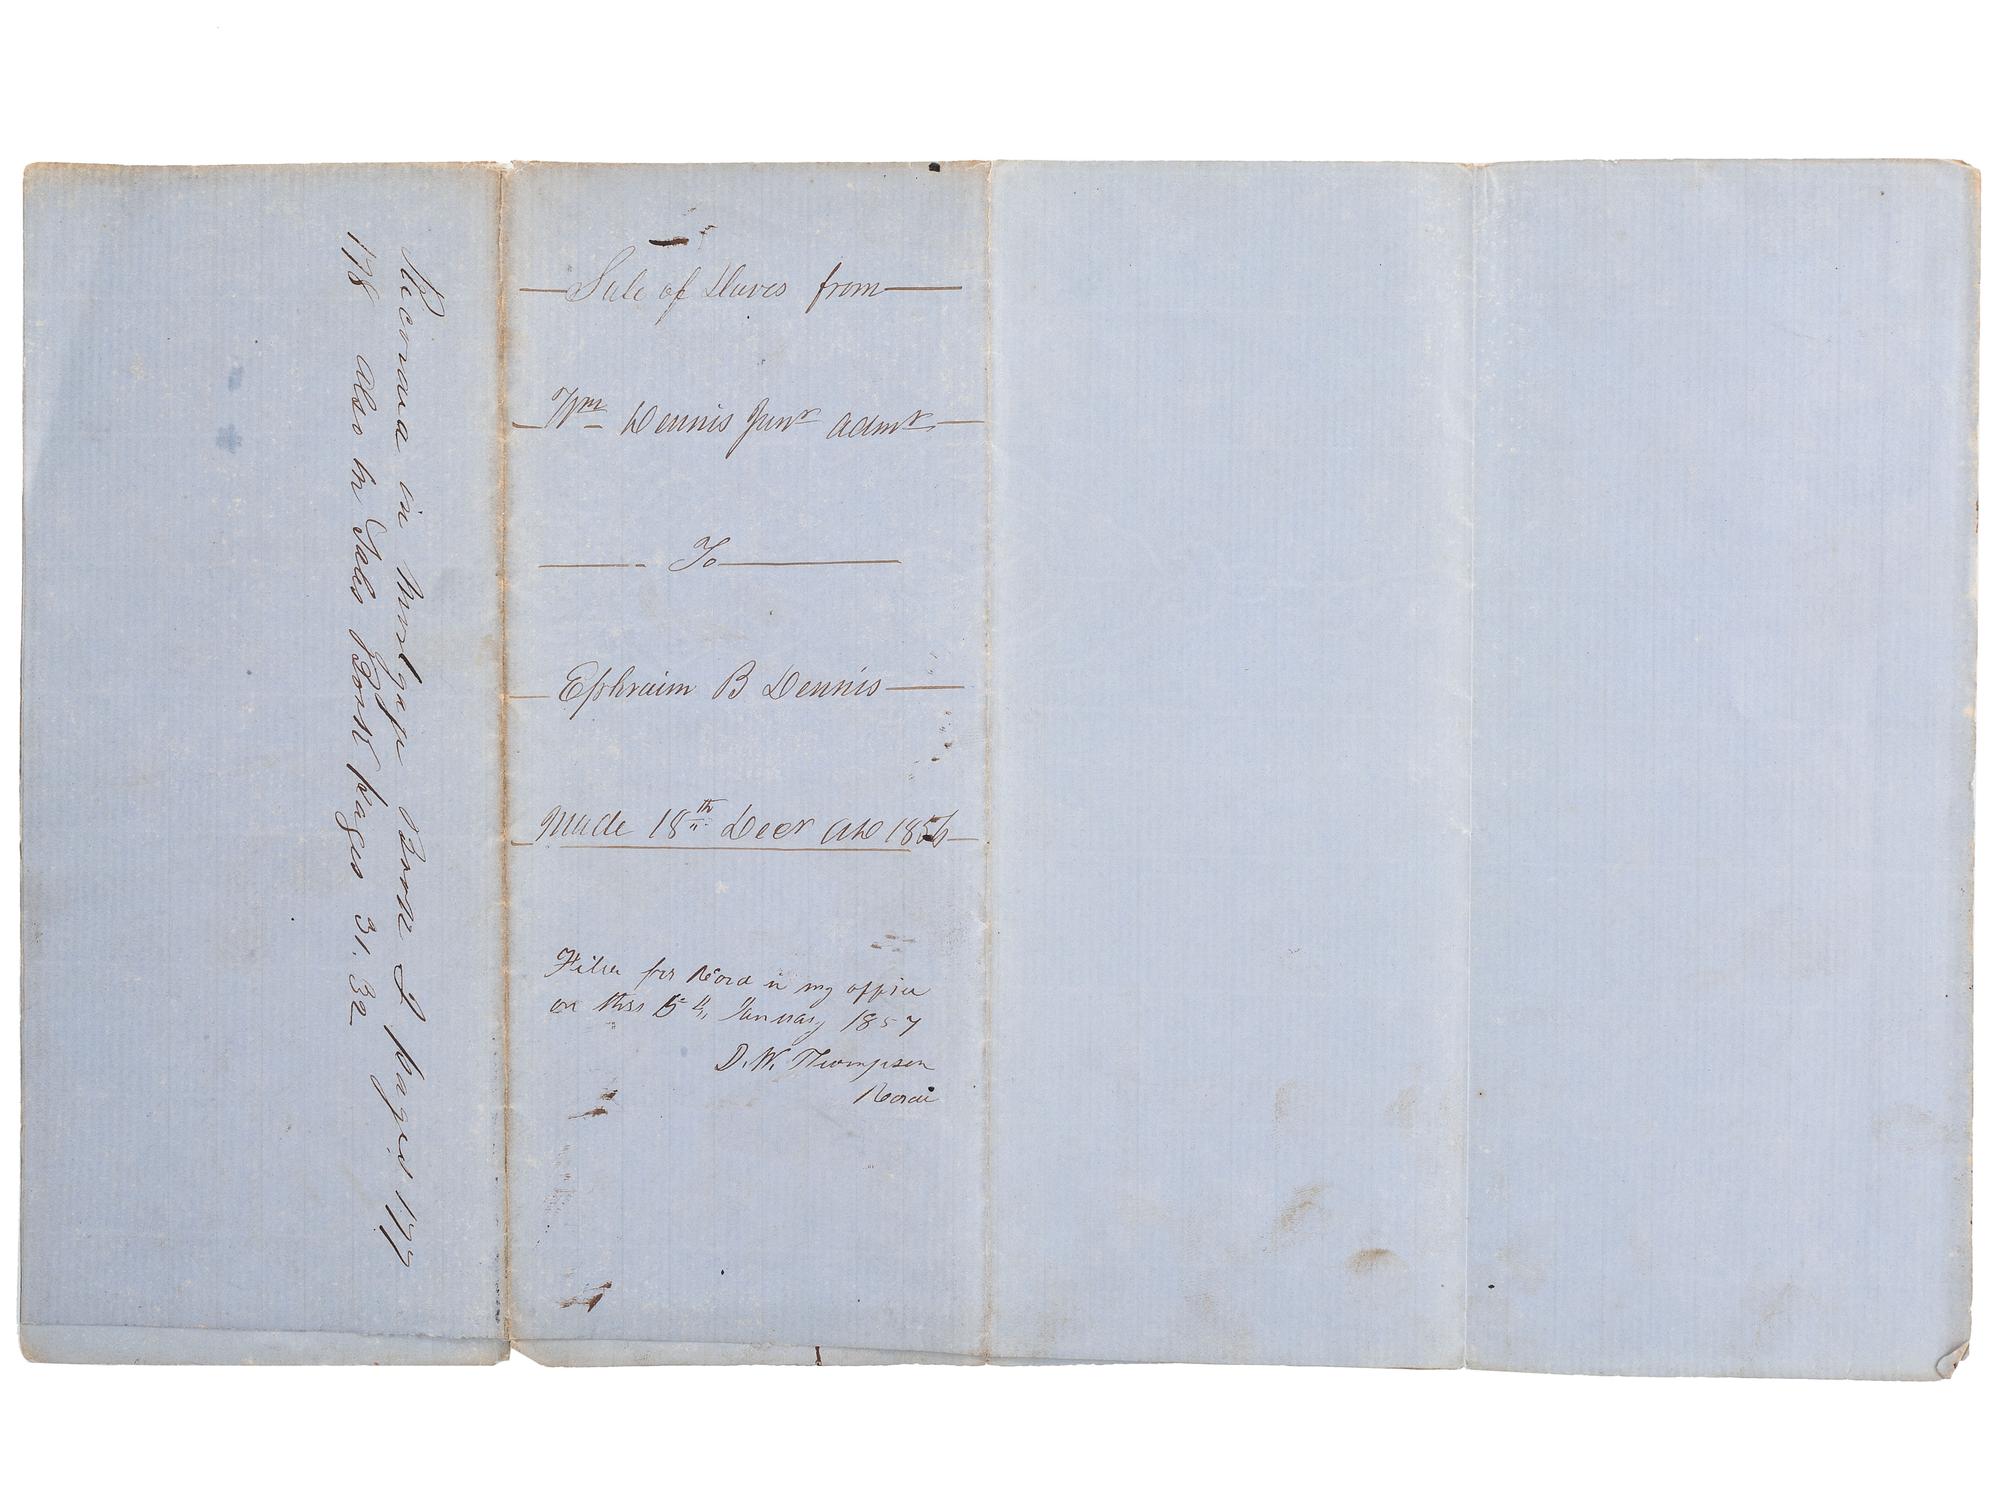 Sale of Slaves from
Wm Dennis Junr Admr
To
Ephraim B Dennis
Made 18th Decr AD 1856
Filed for Record in my office
on this 5th January 1857
D. W. Thompson
Recorder
Recorded in Mortgage Book I pages 177
178 Also in Sales Book pages 31. 32